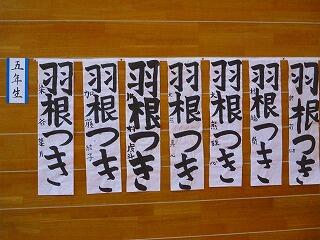 五年生
羽根つき
羽根つき
羽根つき
羽根つき
羽根つき
羽根つき
羽根つき